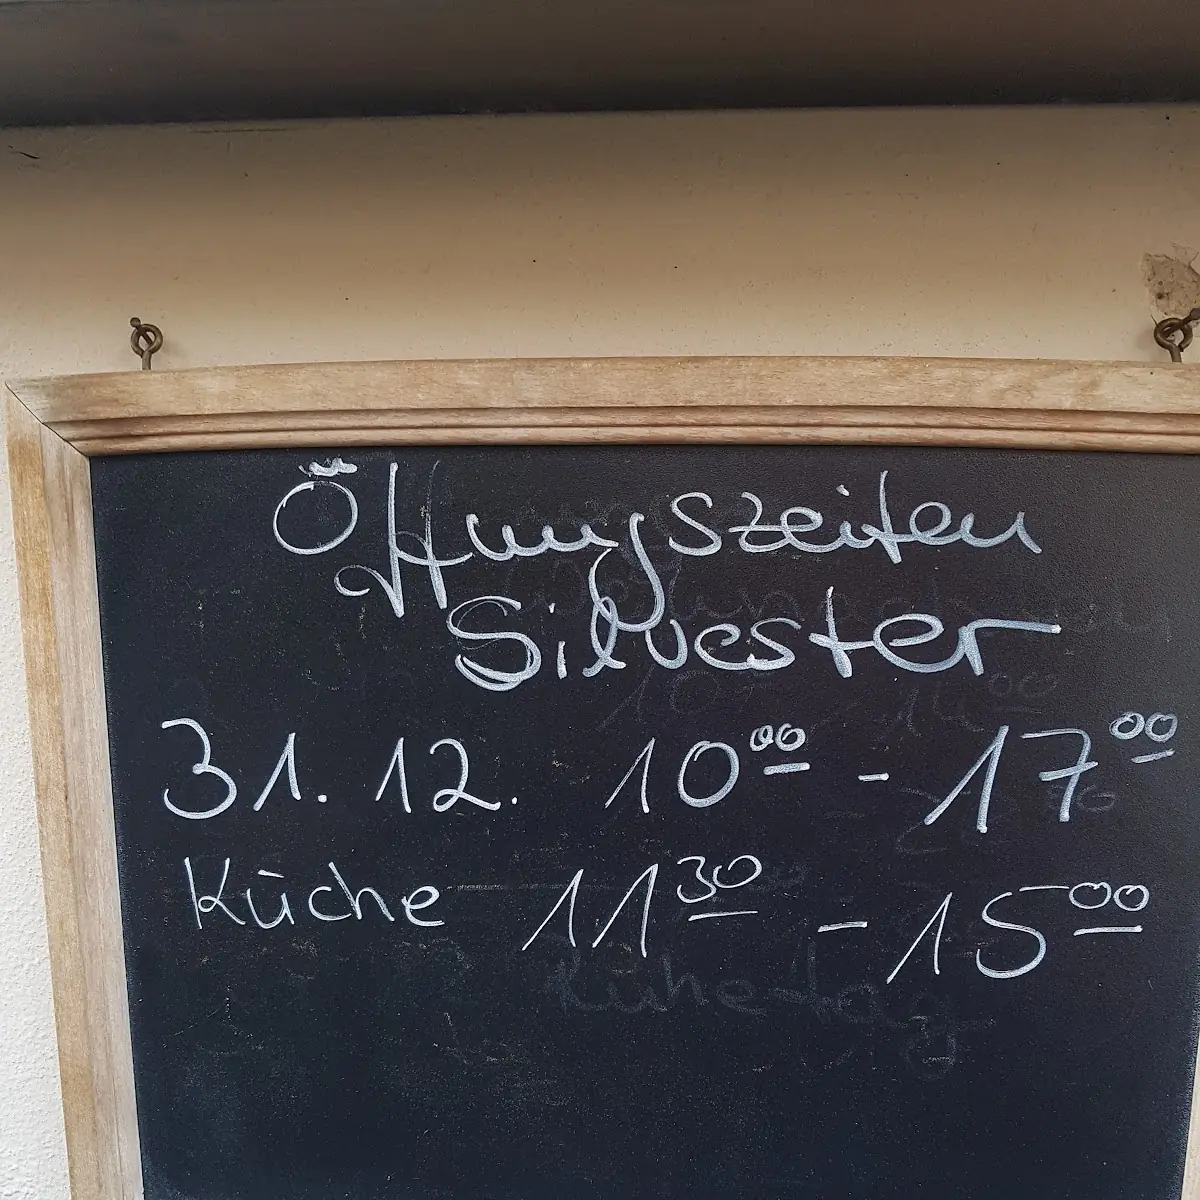 Öffnungszeiten
Silvester
31. 12. 10⁰⁰ - 17⁰⁰
Küche 11³⁰ - 15⁰⁰
Ruhetag